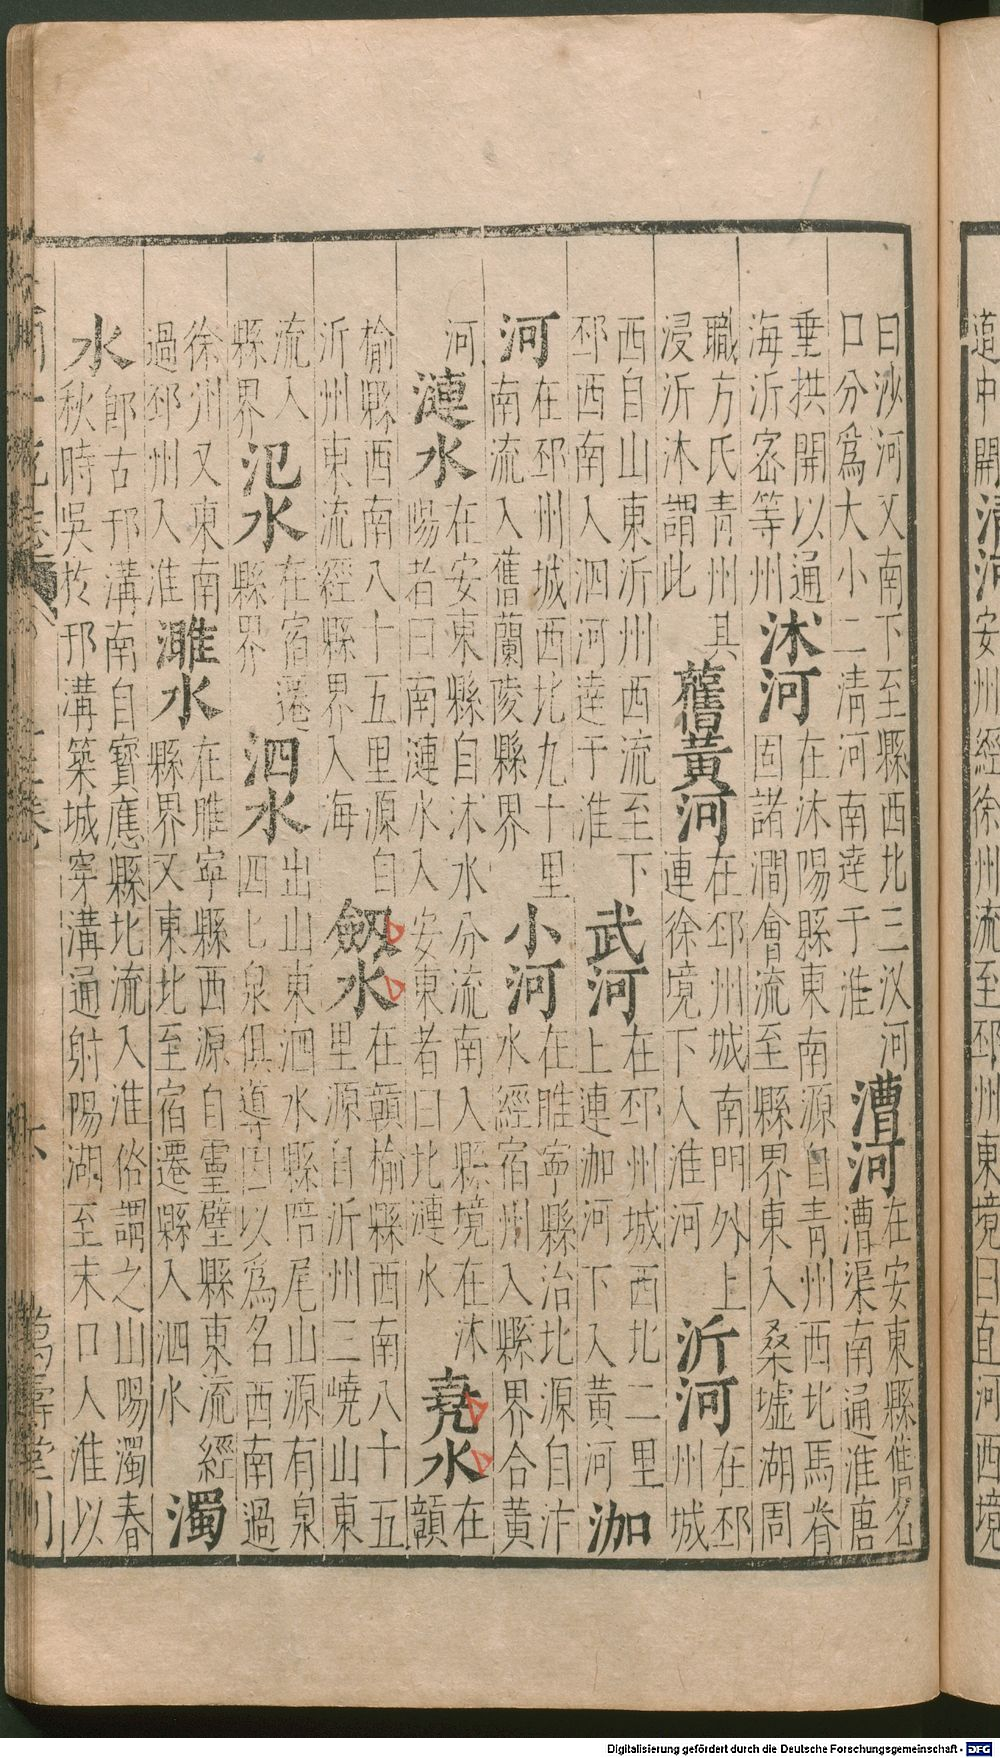 遵中開清河安州經徐州流至邳州東境曰直河西境
曰沙河又南下至縣西北三汊河
口分爲大小二清河南達于淮
漕河
在安東縣舊名
漕渠南通淮唐
垂拱開以通
海沂密等州
沭河
在沭陽縣東南源自青州西北馬脊
固諸澗會流至縣界東入桑墟湖周
職方氏青州其
浸沂沭謂此
舊黃河
在邳州城南門外上
連徐境下入淮河
沂河
在邳
州城
西自山東沂州西流至下
邳西南入泗河達于淮
武河
在邳州城西北二里
上連泇河下入黃河
泇
河
在邳州城西北九十里
南流入舊蘭陵縣界
小河
在睢寧縣治北源自汴
水經宿州入縣界合黃
河
漣水
在安東縣自沭水分流南入縣境在沭
陽者曰南漣水入安東者曰北漣水
堯水
在
贛
榆縣西南八十五里源自
沂州東流經縣界入海
劒水
在贛榆縣西南八十五
里源自沂州三嶢山東
流入
縣界
氾水
在宿遷
縣界
泗水
出山東泗水縣陪尾山源有泉
四匕泉俱導因以爲名西南過
徐州又東南
過邳州入淮
濉水
在睢寧縣西源自靈璧縣東流經
縣界又東北至宿遷縣入泗水
濁
水
即古邗溝南自寶應縣北流入淮俗謂之山陽濁春
秋時吳於邗溝築城穿溝通射陽湖至末口入淮以
六
萬壽堂刊
Digitalisierung gefördert durch die Deutsche Forschungsgemeinschaft - DFG